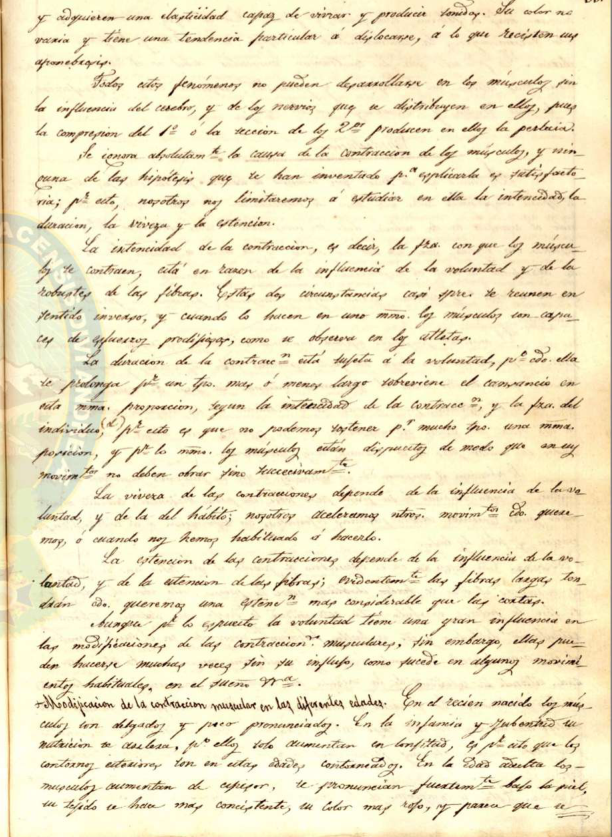 y adquieren una elastisidad capaz de vivrar y producir sonidos. Su color no
varia y tiene una tendencia particular á dislocarse, á lo que recisten sus
aponebrosis.
Todos estos fenómenos no pueden desarrollarse en los músculos sin
la influencia del cerebro, y de los nervios que se distribuyen en ellos, pues
la compresion del 1º ó la seccion de los 2ᵒˢ producen en ellos la
Se ignora absolutamᵗᵉ la causa de la contraccion de los músculos, y nin-
guna de las hipótesis que se han inventado pᵃ esplicarla es satisfacto-
ria; pʳ esto, nosotros nos limitaremos á estudiar en ella la intencidad, la
duracion, la viveza y la estencion.
La intencidad de la contraccion, es decir, la fza. con que los múscu-
los se contraen, está en razon de la influencia de la voluntad y de la
robustes de las fibras. Estas dos circunstancias casi spre. se reunen en
sentido inverso, y cuando lo hacen en uno mmo. los músculos son capa-
ces de esfuerzos prodijiosos, como se observa en los atletas.
La duracion de la contraccⁿ está sujeta á la voluntad, pº cdo. ella
se prolonga pʳ un tpo. mas ó menos largo sobreviene el cansancio en
esta mma. proporcion, segun la intencidad de la contraccⁿ, y la fza. del
individuo; pʳ esto es que no podemos sostener pʳ mucho tpo. una mma.
posicion, y pʳ lo mmo. los músculos están dispuestos de modo que en sus
movimᵗᵒˢ no deben obrar sino succecivamᵗᵉ.
La viveza de las contracciones depende de la influencia de la vo-
luntad, y de la del hábito; nosotros aceleramos ntros. movimᵗᵒˢ cdo. quere-
mos, ó cuando nos hemos habituado á hacerlo.
La estencion de las contracciones depende de la influencia de la vo-
luntad, y de la estencion de las fibras; evidentemᵗᵉ las fibras largas ten-
drán cdo. queremos una estencⁿ mas considerable que las cortas.
Aunque pʳ lo espuesto la voluntad tiene una gran influencia en
las modificaciones de las contracionˢ musculares; sin embargo, ellas pue-
den hacerse muchas veces sin su influjo, como sucede en algunos movimi-
entos habituales, en el sueño &ᵃ.
+ Modificacion de la contraccion muscular en las diferentes edades. En el recien nacido los mús-
culos son delgados y poco pronunciados. En la infancia y jubentud su
nutricion se acelera, pº ellos solo aumentan en lonjitud, es pʳ esto que los
contornos esteriores son en estas edades En la edad adulta los
musculos aumentan de espesor, se pronuncian fuertemᵗᵉ bajo la piel,
su tejido se hace mas concistente, su color mas rojo, y parece que se